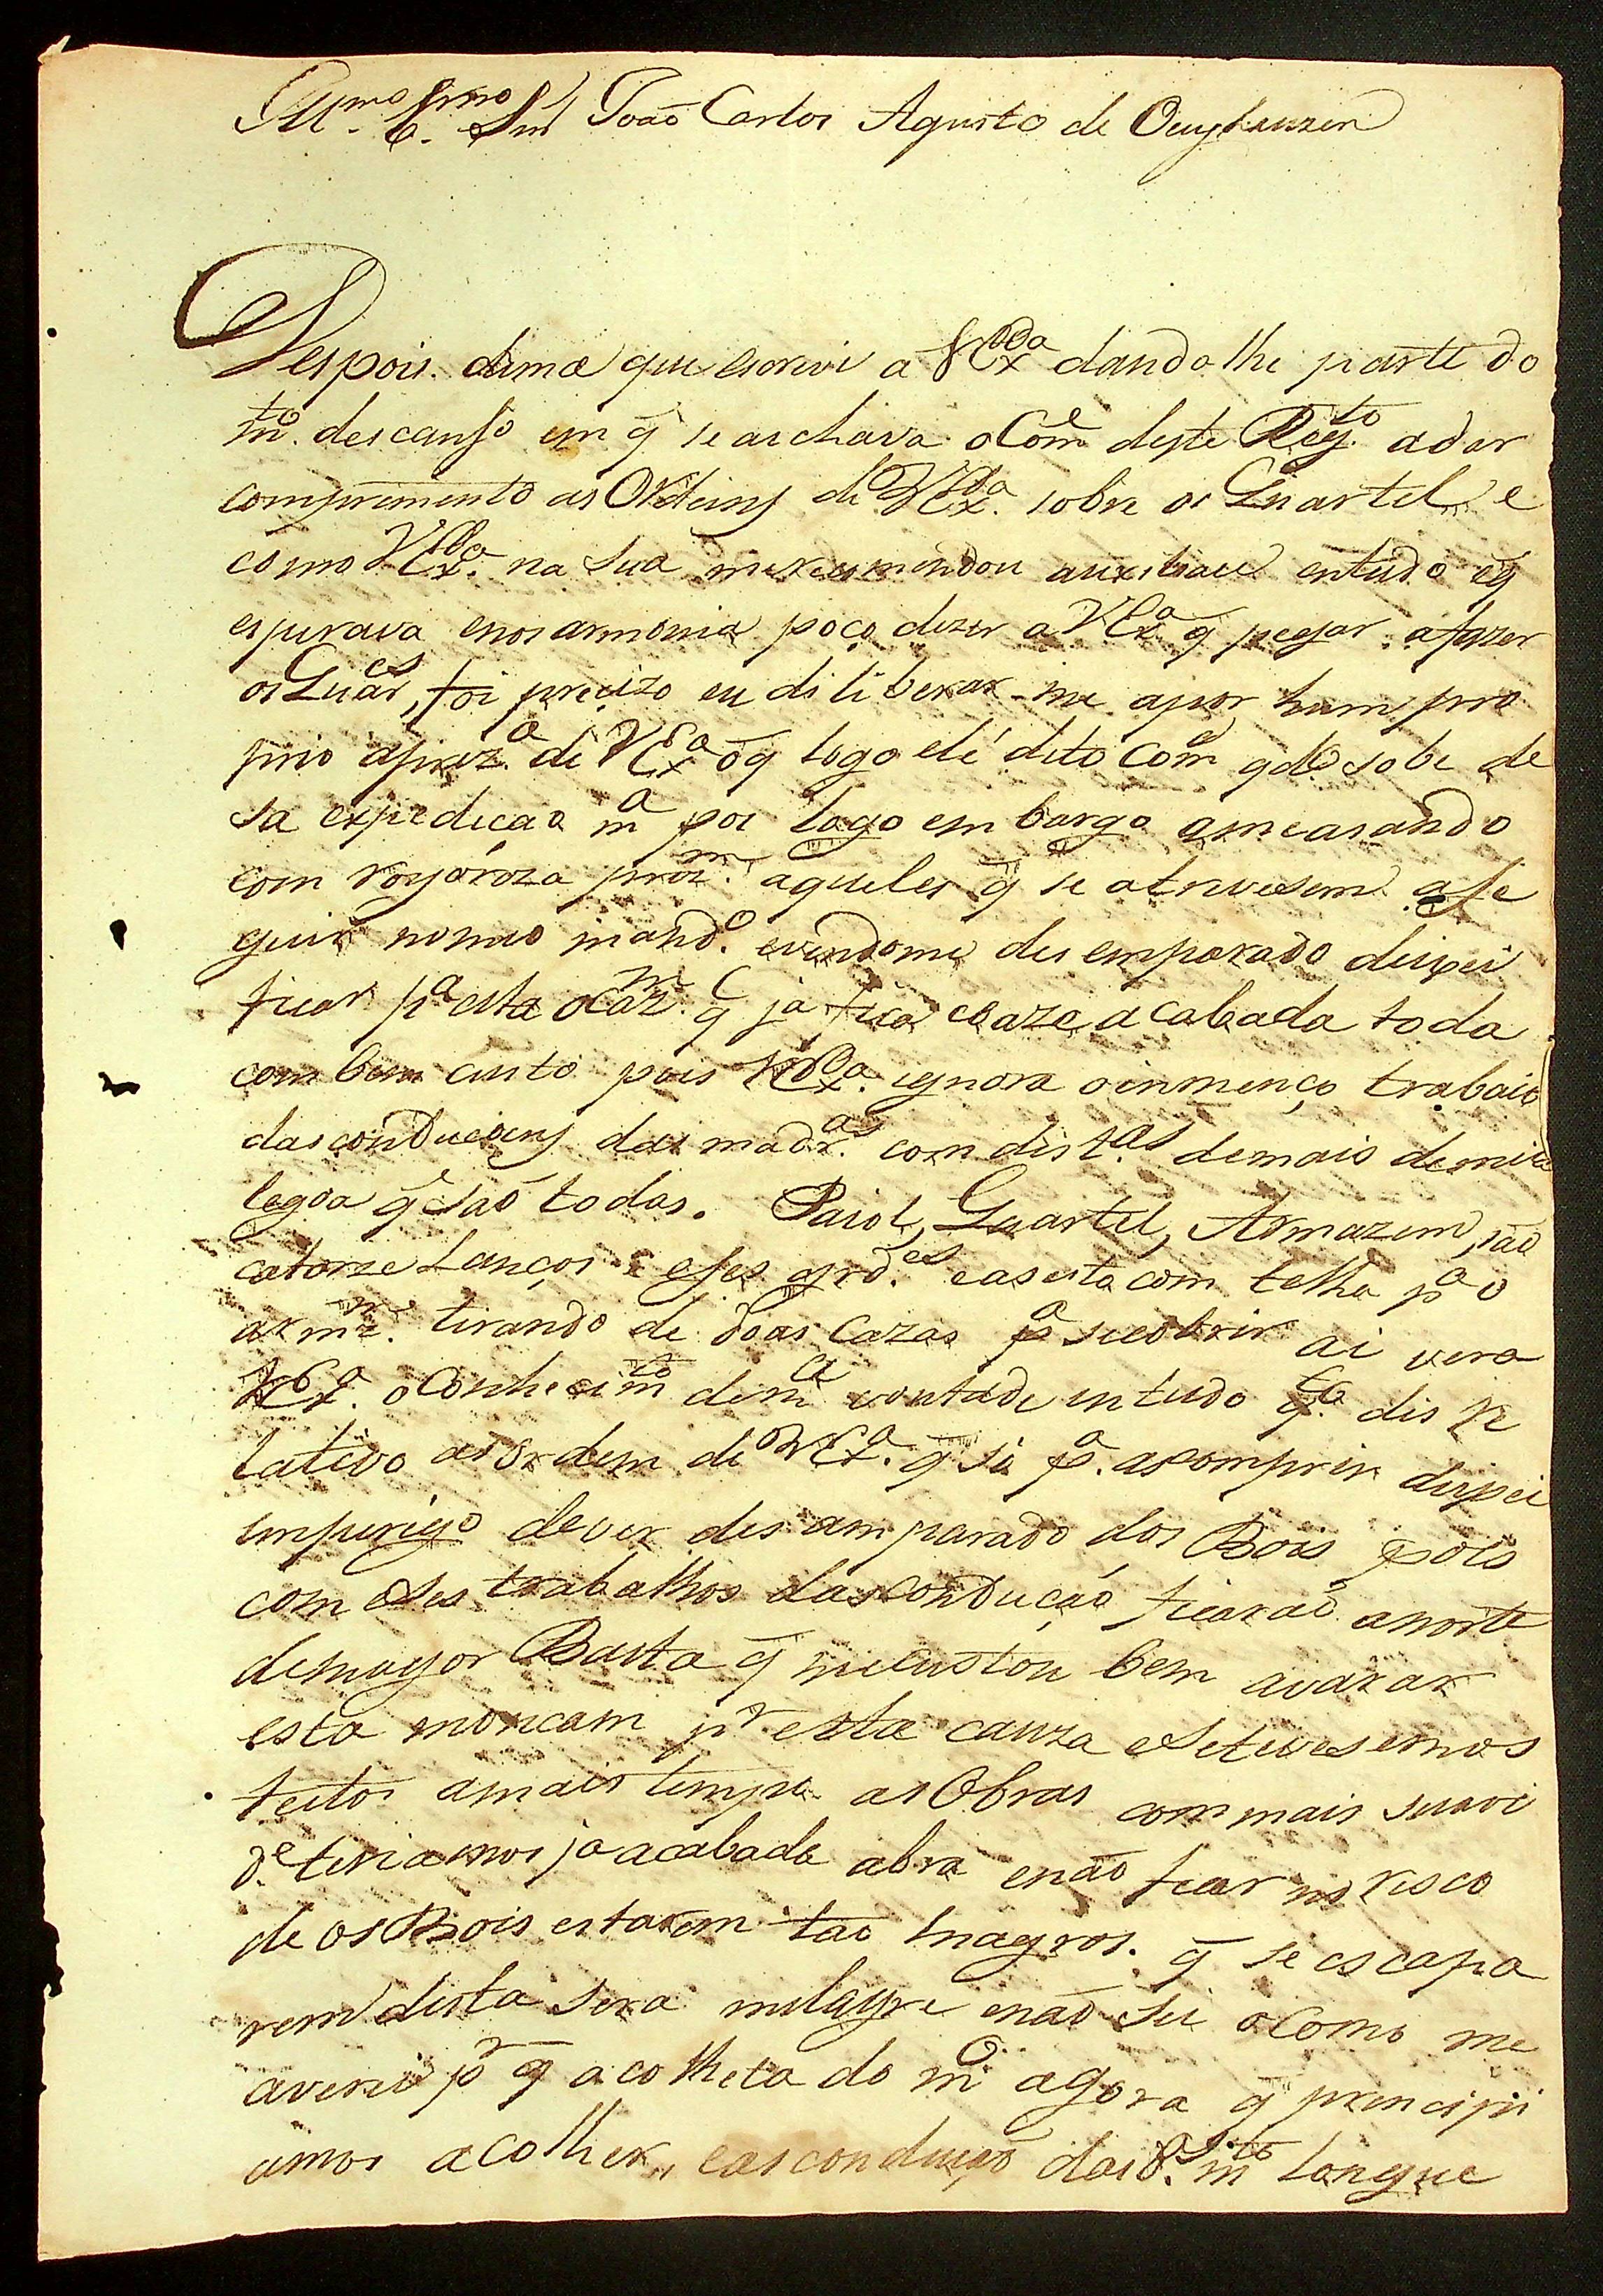 Ill.mo E.xmo Snr João Carlos Agusto de Oeuyhauzen
Despois duma que escrevi a VEx.a dandolhe parte do
m.to descanso em q̃ se aichava o Com.e deste Reg.to a dar
comprimento as Ordeins de VEx.a sobre os Quartel e
como VEx.a na Sua mrecumendou auxiliace entudo e q̃
esperava enos armonia poço dizer a VEx.a q̃ pegar a fazer
os Quar.es, foi precizo eu diliberar-me a por hum pro
prio a prez.a de VEx.a o q̃ logo elé dito Com.e q.do sobe de
sa expedicaõ m.a pos logo embargo ameasando
com rogoroza prizm. aqueles q̃ se atrevesem a se
guir nomeo mand.o evendome desemparado dispei
ficar p.a esta ocazm. q̃ ja fica coaze acabada toda
com bem custo pois VEx.a ignora o inmenço trabaio
das conducoins das madr.as com dist.as demais de meia
legoa q̃ saõ todas. Paiol, Quartel, Armazem, saõ
catorze Lanços e eses grd.es e as esta com telha p.a o
armz.m tirando de doas Cazas p.a se cobrir ai vera
VEx.a o Conhecim.to de m.a vontade in tudo q.to dis re
lativo as ordem de VEx.a q̃ si p.a as comprir dispei
imperigo de ver desamparado dos Bois pois
com eses trabalhos das conduçaõ ficaraõ a morte
demayor Basta q̃ me custou bem avarar
esta moncam p.r esta cauza e se tivesemos
feitos amais tempo as Obras com mais suavi
d.e teriamos ja acabada abra enaõ ficar no risco
de os Bois estarem taõ magros. q̃ se escapa
rem desta Sera milagre enaõ Sei o Como me
averei p.r q̃ a colheta do m.o agora q̃ principi
amos a colher, e as conduçaõ das d.as m.to Longue